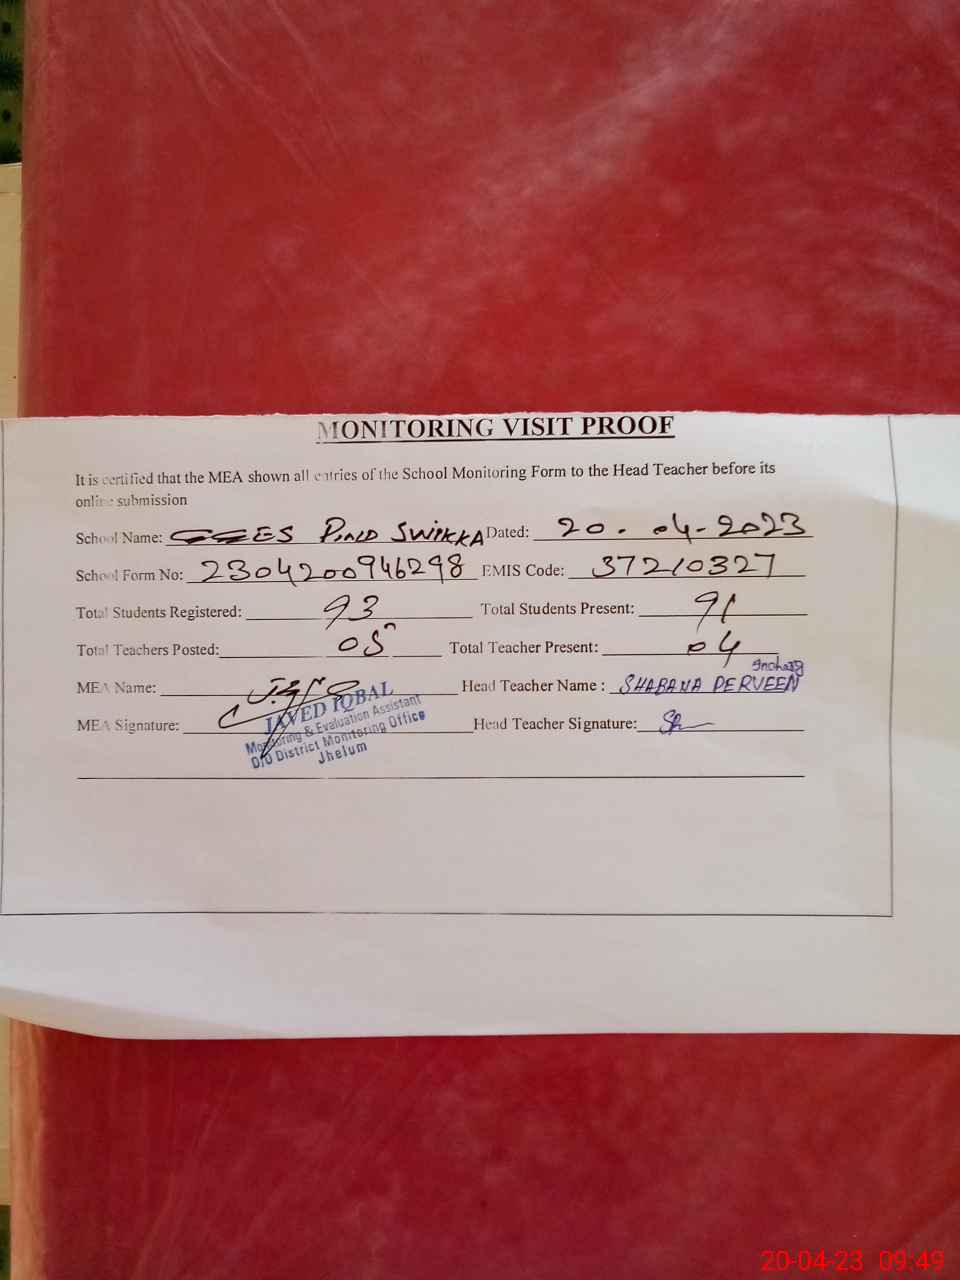 MONITORING VISIT PROOF
It is certified that the MEA shown all entries of the School Monitoring Form to the Head Teacher before its
online submission
School Name: GGES PIND SWIKKA Dated: 20.04-2023
School Form No: 2304200946298 EMIS Code: 37210327
Total Students Registered: 93 Total Students Present: 91
Total Teachers Posted: 05 Total Teacher Present: 04
Incharg
MEA Name: Head Teacher Name : SHABANA PERVEEN
MEA Signature: Head Teacher Signature:
JAVED IQBAL
Monitoring & Evaluation Assistant
D/O District Monitoring Office
Jhelum
20-04-23 09:49